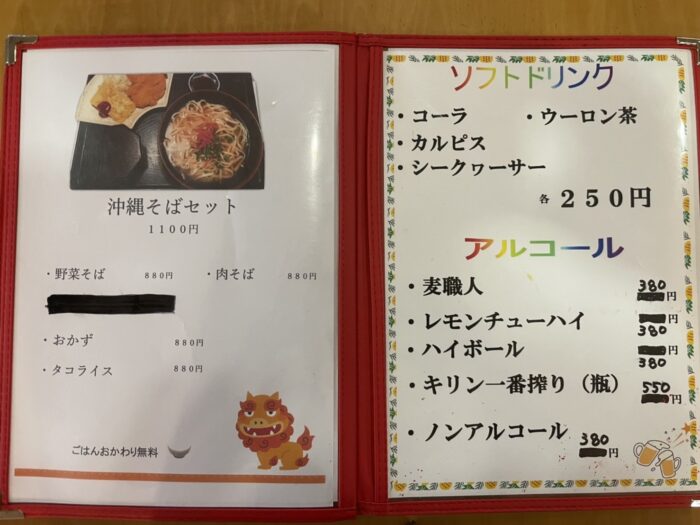 沖縄そばセット
1100円
・野菜そば 880円 ・肉そば 880円
・おかず 880円
・タコライス 880円
ごはんおかわり無料
ソフトドリンク
・コーラ ・ウーロン茶
・カルピス
・シークヮーサー
各 250円
アルコール
・麦職人 380円
・レモンチューハイ 380円
・ハイボール 380円
・キリン一番搾り（瓶） 550円
・ノンアルコール 380円